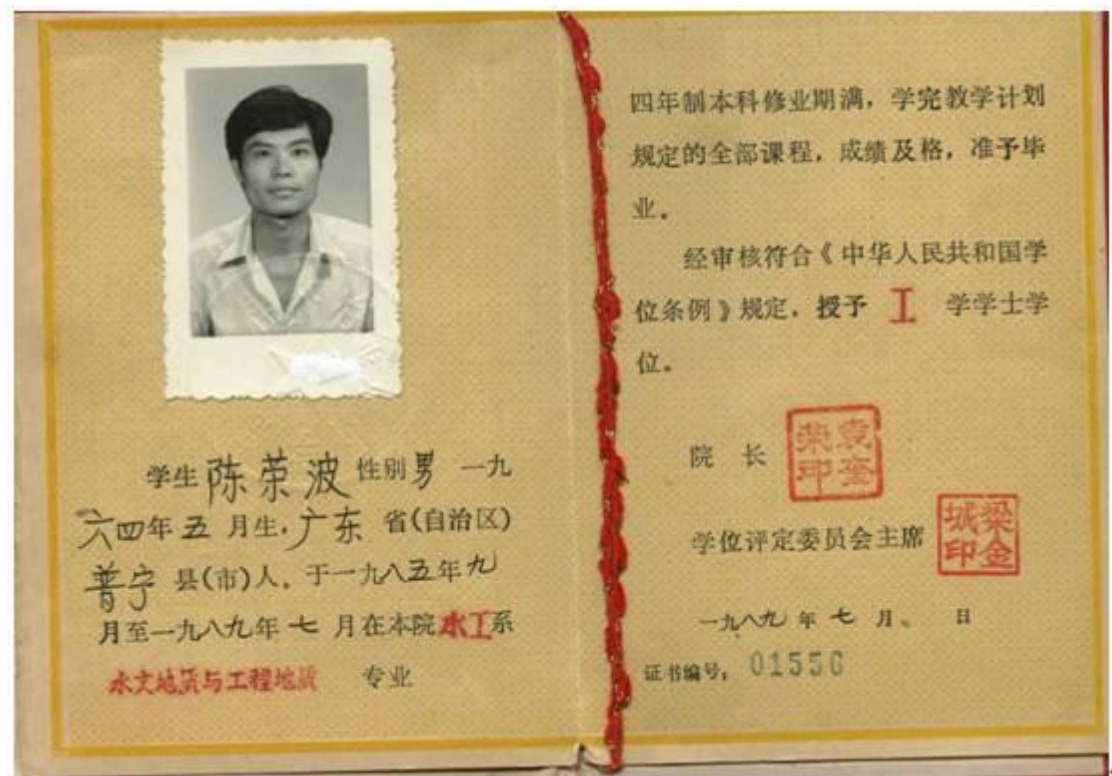 学生陈荣波性别男 一九
六四年五月生,广东 省(自治区)
普宁 县(市)人, 于一九八五年九
月至一九八九年七月在本院水工系
水文地质与工程地质 专业
四年制本科修业期满，学完教学计划
规定的全部课程，成绩及格，准予毕
业。
经审核符合《中华人民共和国学
位条例》规定，授予 工 学学士学
位。
院 长
袁奎荣印
学位评定委员会主席
梁金城印
一九八九年七月、 日
证书编号: 01556